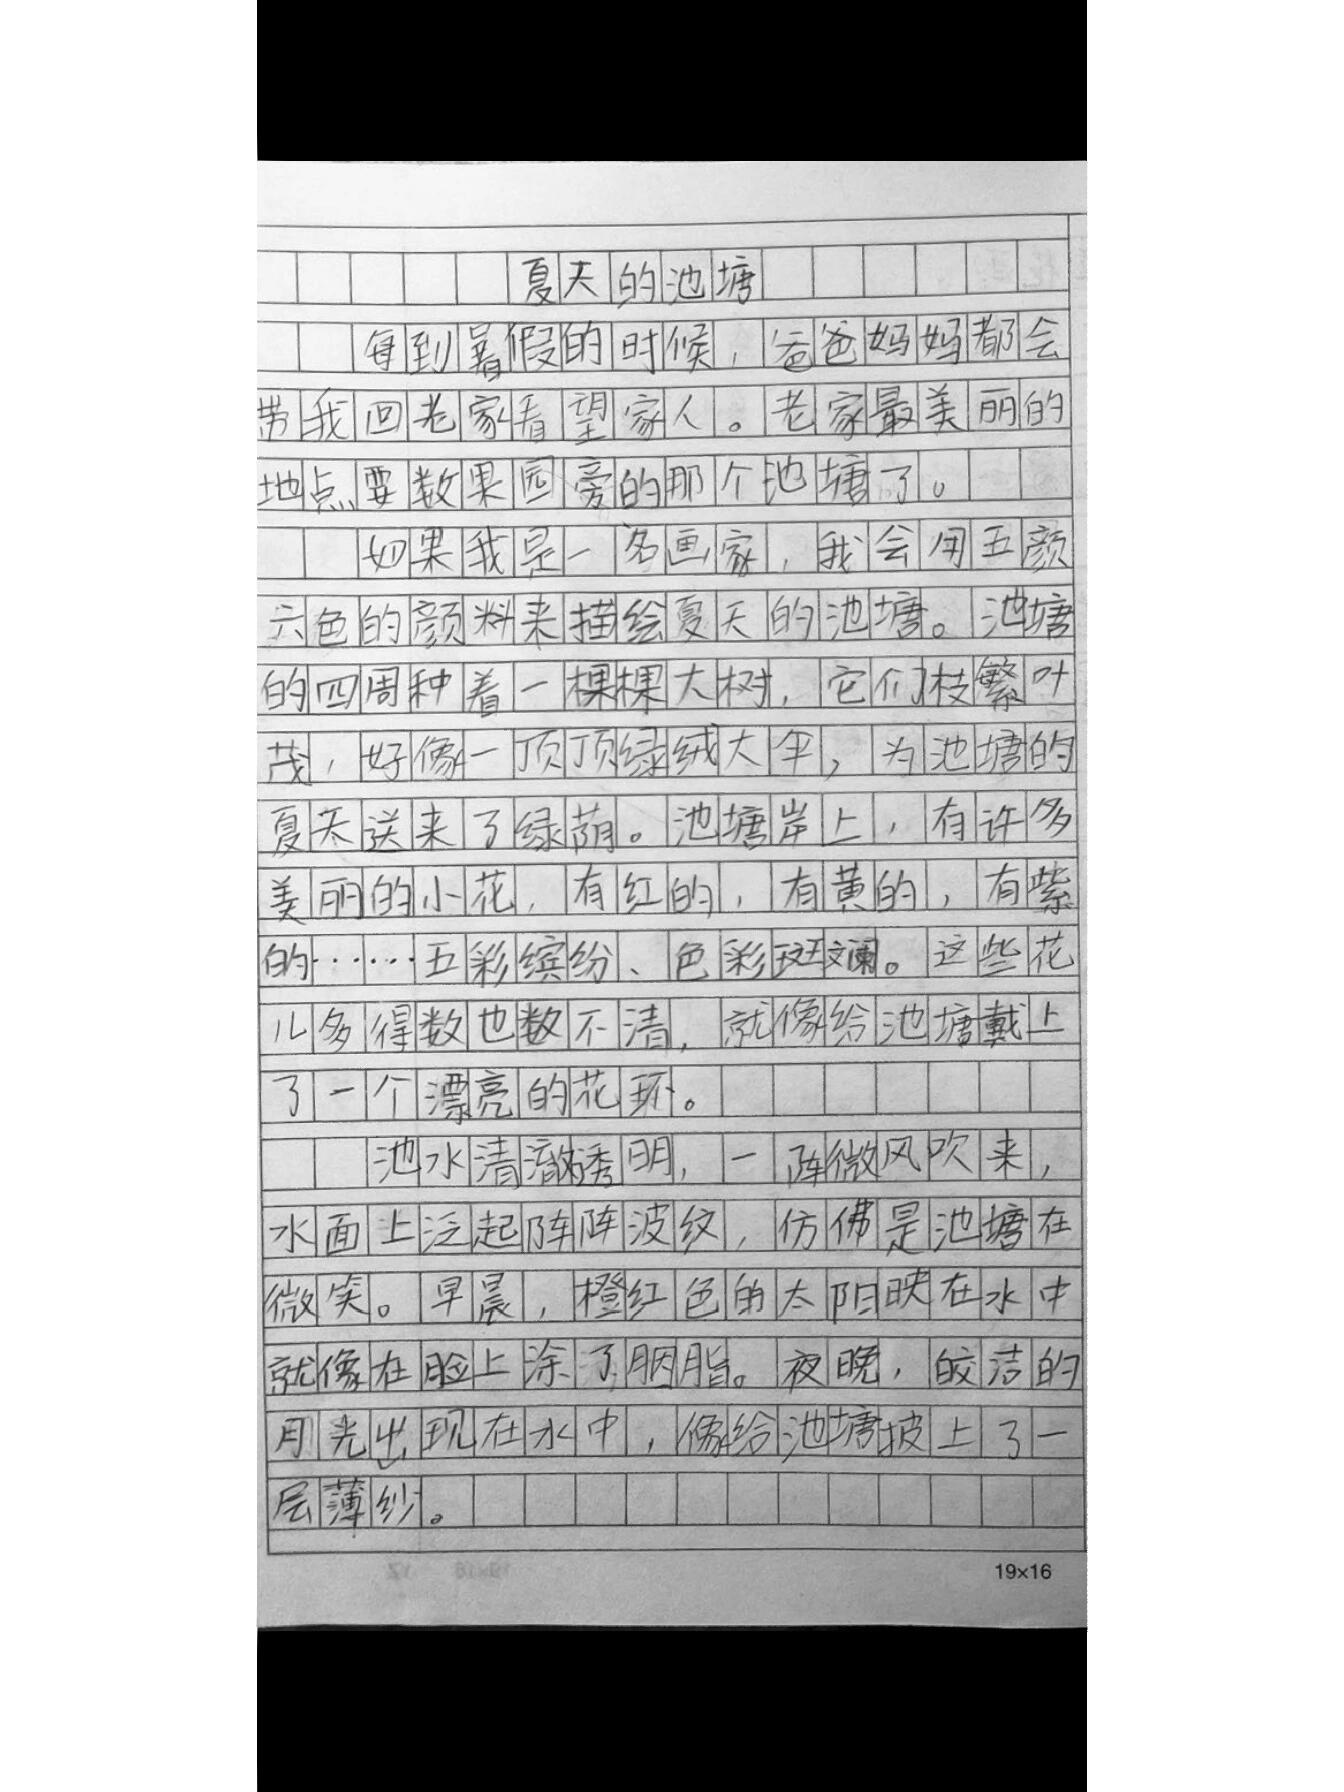 夏天的池塘
每到暑假的时候，爸爸妈妈都会
带我回老家看望家人。老家最美丽的
地点要数果园旁的那个池塘了。
如果我是一名画家，我会用五颜
六色的颜料来描绘夏天的池塘。池塘
的四周种着一棵棵大树，它们枝繁叶
茂，好像一顶顶绿绒大伞，为池塘的
夏天送来了绿荫。池塘岸上，有许多
美丽的小花，有红的，有黄的，有紫
的……五彩缤纷、色彩斑斓。这些花
儿多得数也数不清，就像给池塘戴上
了一个漂亮的花环。
池水清澈透明，一阵微风吹来，
水面上泛起阵阵波纹，仿佛是池塘在
微笑。早晨，橙红色的太阳映在水中
就像在脸上涂了胭脂。夜晚，皎洁的
月光出现在水中，像给池塘披上了一
层薄纱。
19×16